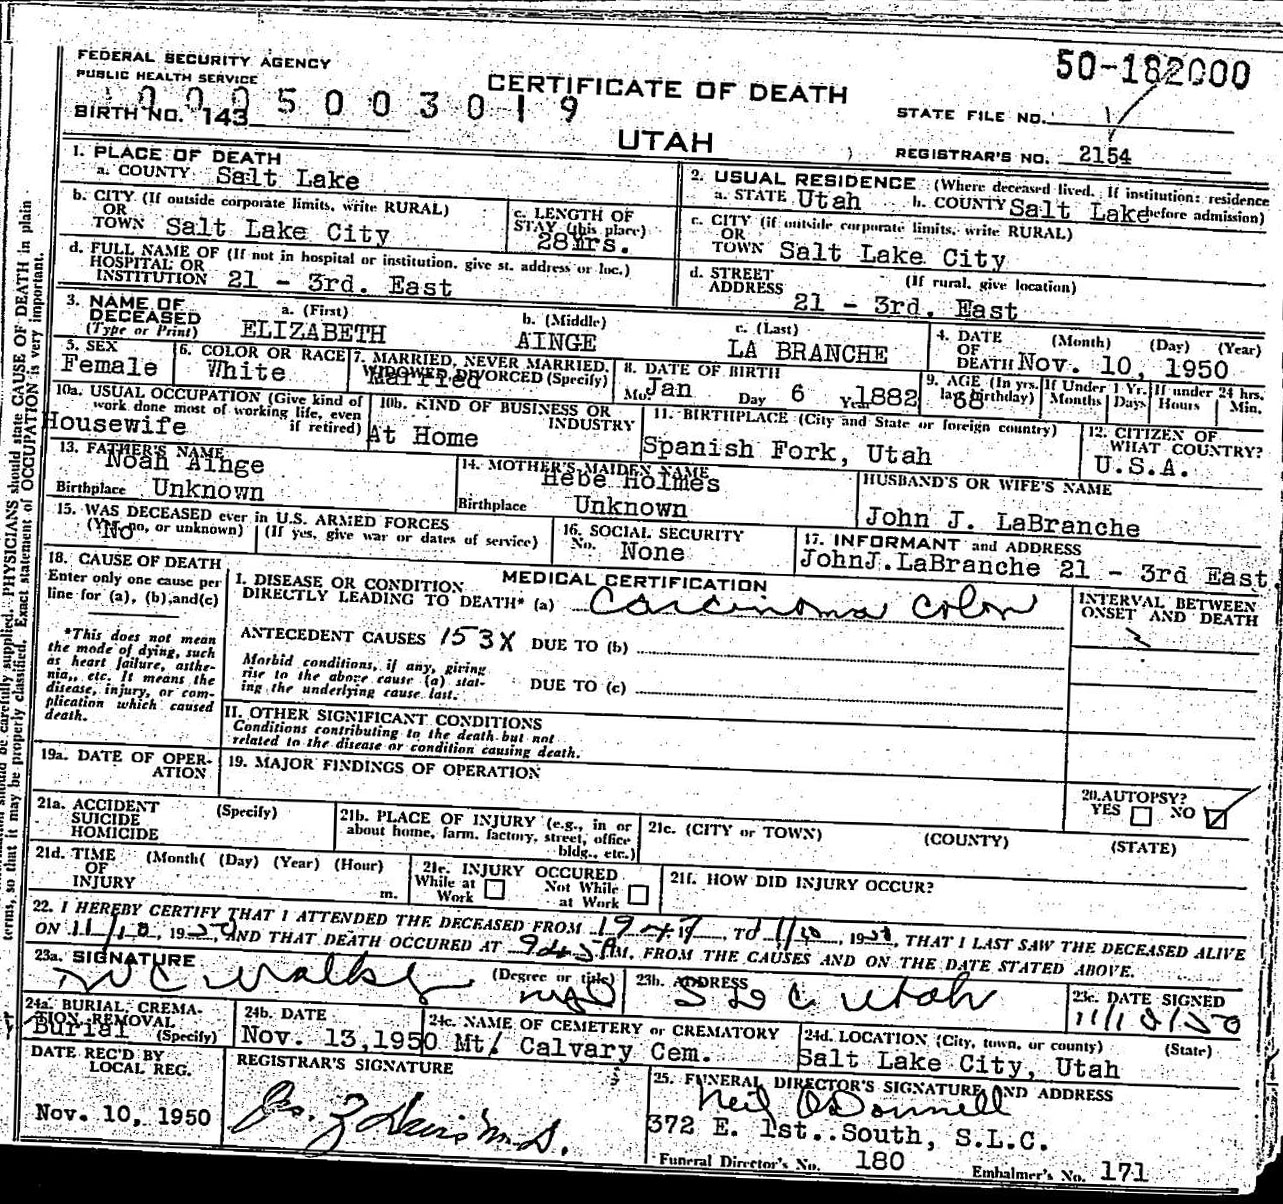 FEDERAL SECURITY AGENCY
PUBLIC HEALTH SERVICE
50-182000
CERTIFICATE OF DEATH
0005003019
BIRTH NO. 143
STATE FILE NO.
UTAH
REGISTRAR'S NO. 2154
1. PLACE OF DEATH
a. COUNTY Salt Lake
2. USUAL RESIDENCE (Where deceased lived. If institution: residence before admission)
a. STATE Utah b. COUNTY Salt Lake
b. CITY (If outside corporate limits, write RURAL)
OR
TOWN Salt Lake City
c. LENGTH OF
STAY (this place)
28Yrs.
c. CITY (if outside corporate limits, write RURAL)
OR
TOWN Salt Lake City
d. FULL NAME OF (If not in hospital or institution, give st. address or loc.)
HOSPITAL OR
INSTITUTION 21 - 3rd. East
d. STREET (If rural, give location)
ADDRESS
21 - 3rd. East
3. NAME OF
DECEASED
(Type or Print)
a. (First)
ELIZABETH
b. (Middle)
AINGE
c. (Last)
LA BRANCHE
4. DATE (Month) (Day) (Year)
OF
DEATH Nov. 10, 1950
5. SEX
Female
6. COLOR OR RACE
White
7. MARRIED, NEVER MARRIED,
WIDOWED, DIVORCED (Specify)
Married
8. DATE OF BIRTH
Mo. Jan Day 6 Year 1882
9. AGE (In yrs.
last birthday)
68
If Under 1 Yr.
Months Days
If under 24 hrs.
Hours Min.
10a. USUAL OCCUPATION (Give kind of
work done most of working life, even
if retired)
Housewife
10b. KIND OF BUSINESS OR
INDUSTRY
At Home
11. BIRTHPLACE (City and State or foreign country)
Spanish Fork, Utah
12. CITIZEN OF
WHAT COUNTRY?
U.S.A.
13. FATHER'S NAME
Noah Ainge
Birthplace Unknown
14. MOTHER'S MAIDEN NAME
Hebe Holmes
Birthplace Unknown
HUSBAND'S OR WIFE'S NAME
John J. LaBranche
15. WAS DECEASED ever in U.S. ARMED FORCES
(Yes, no, or unknown) (If yes, give war or dates of service)
No
16. SOCIAL SECURITY
No. None
17. INFORMANT and ADDRESS
JohnJ.LaBranche 21 - 3rd East.
18. CAUSE OF DEATH
Enter only one cause per
line for (a), (b),and(c)
*This does not mean
the mode of dying, such
as heart failure, asthe-
nia,, etc. It means the
disease, injury, or com-
plication which caused
death.
MEDICAL CERTIFICATION
I. DISEASE OR CONDITION
DIRECTLY LEADING TO DEATH* (a) Carcinoma Colon
INTERVAL BETWEEN
ONSET AND DEATH
ANTECEDENT CAUSES 153X DUE TO (b)
Morbid conditions, if any, giving
rise to the above cause (a) stat-
ing the underlying cause last.
DUE TO (c)
II. OTHER SIGNIFICANT CONDITIONS
Conditions contributing to the death but not
related to the disease or condition causing death.
19a. DATE OF OPER-
ATION
19. MAJOR FINDINGS OF OPERATION
20. AUTOPSY?
YES NO
21a. ACCIDENT (Specify)
SUICIDE
HOMICIDE
21b. PLACE OF INJURY (e.g., in or
about home, farm, factory, street, office
bldg., etc.)
21c. (CITY or TOWN) (COUNTY) (STATE)
21d. TIME (Month( (Day) (Year) (Hour)
OF
INJURY m.
21e. INJURY OCCURED
While at Work
Not While at Work
21f. HOW DID INJURY OCCUR?
22. I HEREBY CERTIFY THAT I ATTENDED THE DECEASED FROM 1947 19 , TO 11/10, 1950, THAT I LAST SAW THE DECEASED ALIVE
ON 11/10, 1950, AND THAT DEATH OCCURED AT 9:45 A M, FROM THE CAUSES AND ON THE DATE STATED ABOVE.
23a. SIGNATURE (Degree or title)
23b. ADDRESS
S L C Utah
23c. DATE SIGNED
11/10/50
24a. BURIAL, CREMA-
TION REMOVAL
(Specify)
Burial
24b. DATE
Nov. 13,1950
24c. NAME OF CEMETERY or CREMATORY
Mt. Calvary Cem.
24d. LOCATION (City, town, or county) (State)
Salt Lake City, Utah
DATE REC'D BY
LOCAL REG.
Nov. 10, 1950
REGISTRAR'S SIGNATURE
25. FUNERAL DIRECTOR'S SIGNATURE AND ADDRESS
Neil O'Donnell
372 E. 1st..South, S.L.C.
Funeral Director's No. 180 Embalmer's No. 171
supplied. PHYSICIANS should state CAUSE OF DEATH in plain
terms, so that it may be properly classified. Exact statement of OCCUPATION is very important.